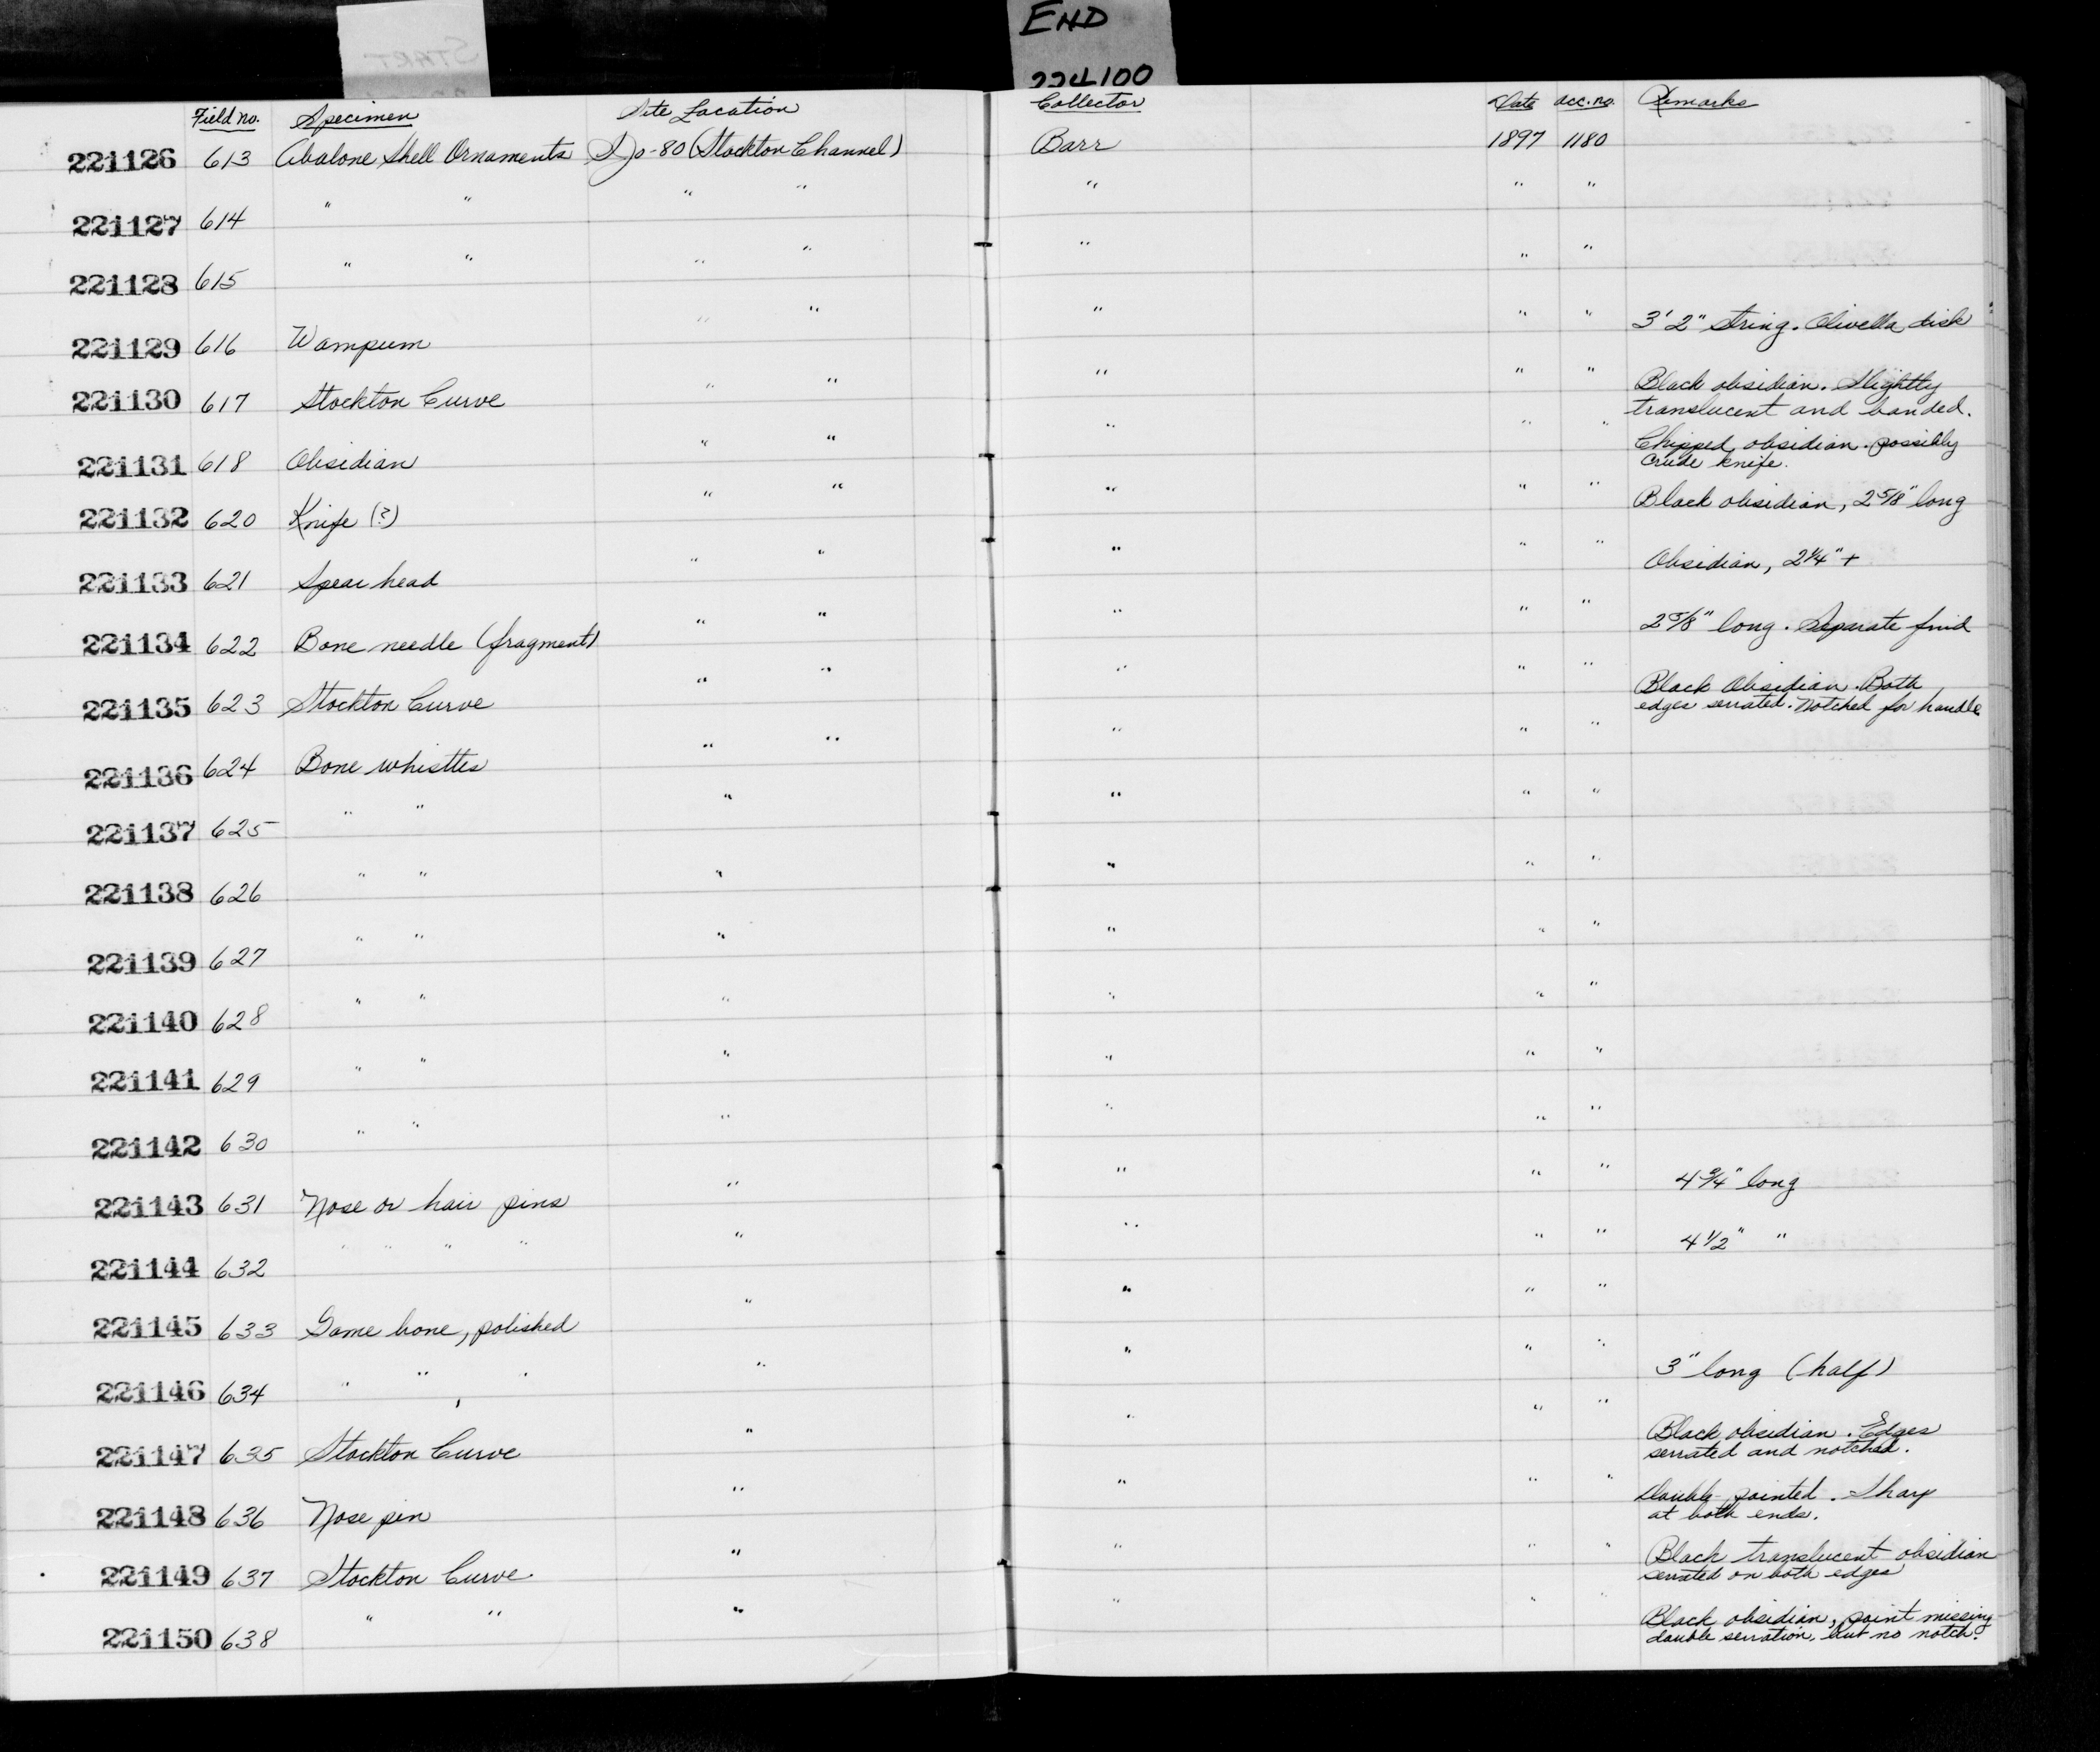 START
END
224100
Field no. Specimen Site Location Collector Date acc. no. Remarks
221126 613 Abalone Shell Ornaments SJo-80 (Stockton Channel) Barr 1897 1180
221127 614 " " " " " " "
221128 615 " " " " " " "
221129 616 Wampum " " " " " 3' 2" string. Olivella disk
221130 617 Stockton Curve " " " " " Black obsidian. Slightly
translucent and banded.
221131 618 Obsidian " " " " " Chipped obsidian. possibly
crude knife.
221132 620 Knife (?) " " " " " Black obsidian, 2 5/8" long
221133 621 Spear head " " " " " Obsidian, 2 1/4" +
221134 622 Bone needle (fragment) " " " " " 2 5/8" long. Separate find
221135 623 Stockton Curve " " " " " Black Obsidian. Both
edges serrated. Notched for handle
221136 624 Bone whistles " " " " "
221137 625 " " " " " "
221138 626 " " " " " "
221139 627 " " " " " "
221140 628 " " " " " "
221141 629 " " " " " "
221142 630 " " " " " "
221143 631 Nose or hair pins " " " " 4 3/4" long
221144 632 " " " " " " " " 4 1/2" "
221145 633 Game bone, polished " " " "
221146 634 " " , " " " " " 3" long (half)
221147 635 Stockton Curve " " " " Black obsidian. Edges
serrated and notched.
221148 636 Nose pin " " " " Double-pointed. Sharp
at both ends.
221149 637 Stockton Curve. " " " " Black translucent obsidian
serrated on both edges
221150 638 " " " " " " Black obsidian, point missing
double serration, but no notch.